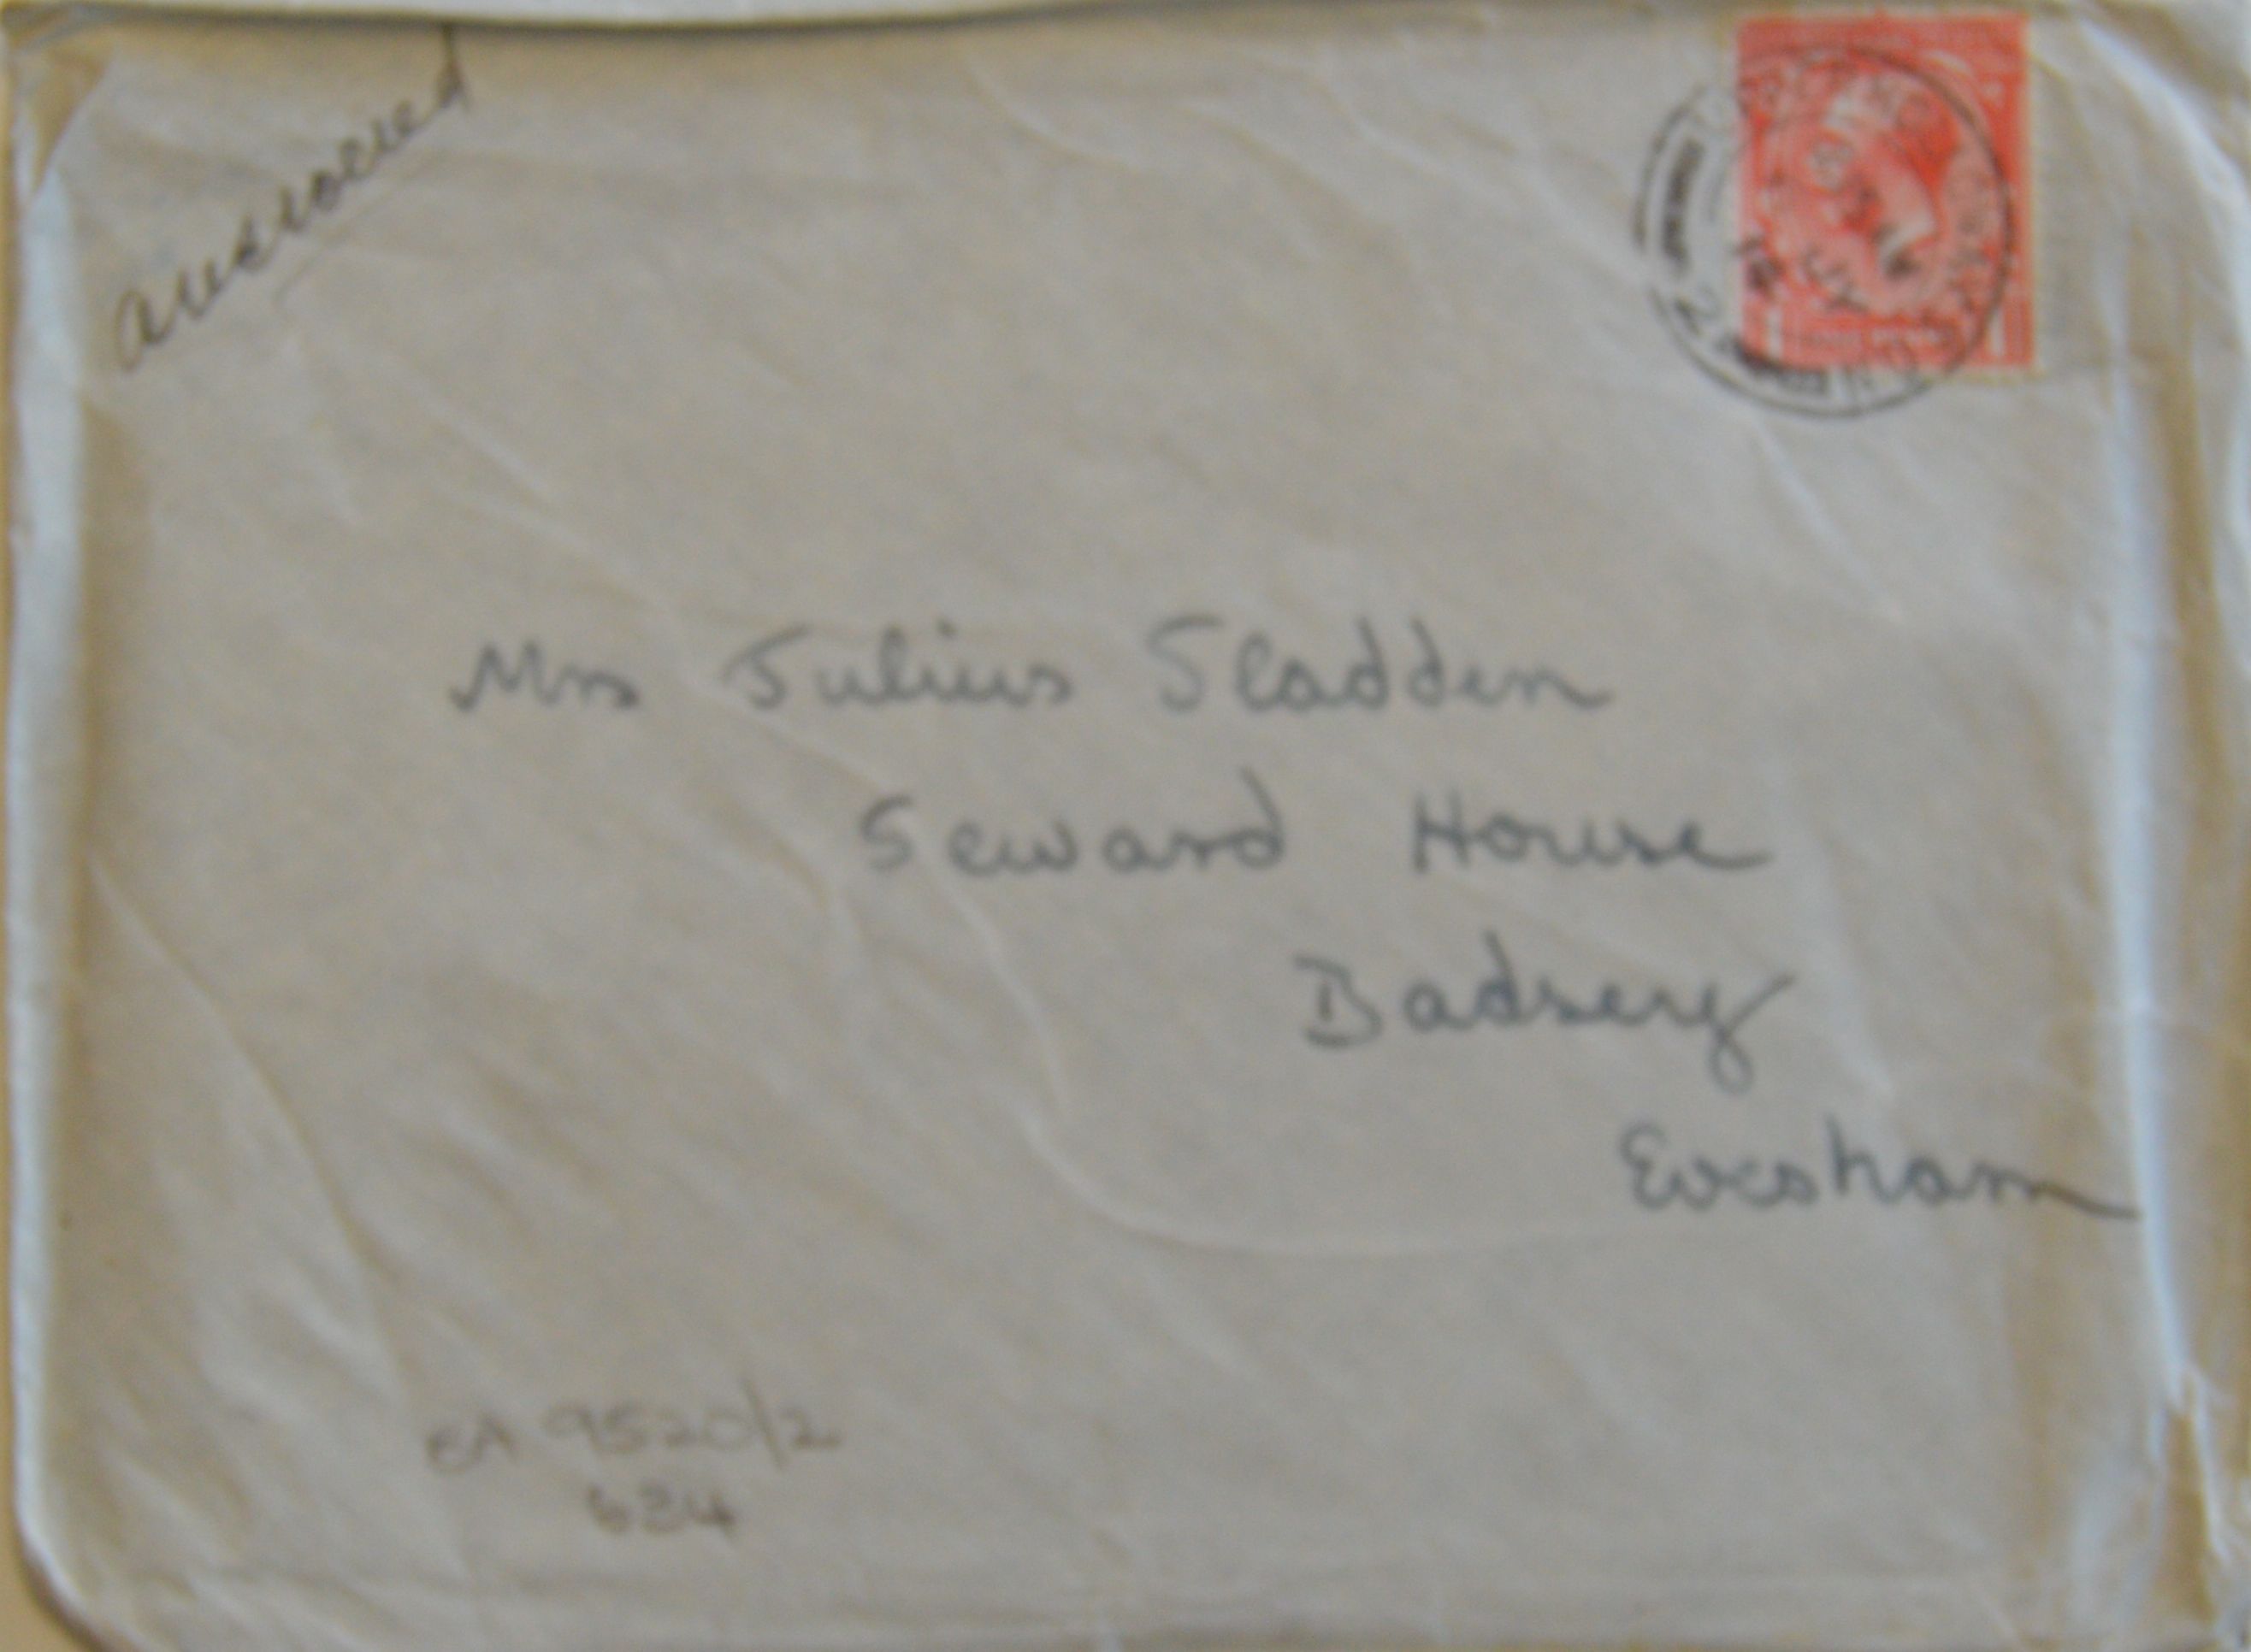 answered
Mrs Julius Sladden
Seward House
Badsey
Evesham
EA 9520/2
624